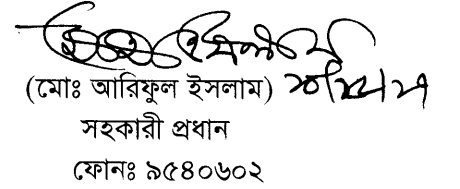 (মোঃ আরিফুল ইসলাম)
সহকারী প্রধান
ফোনঃ ৯৫৪০৬০২